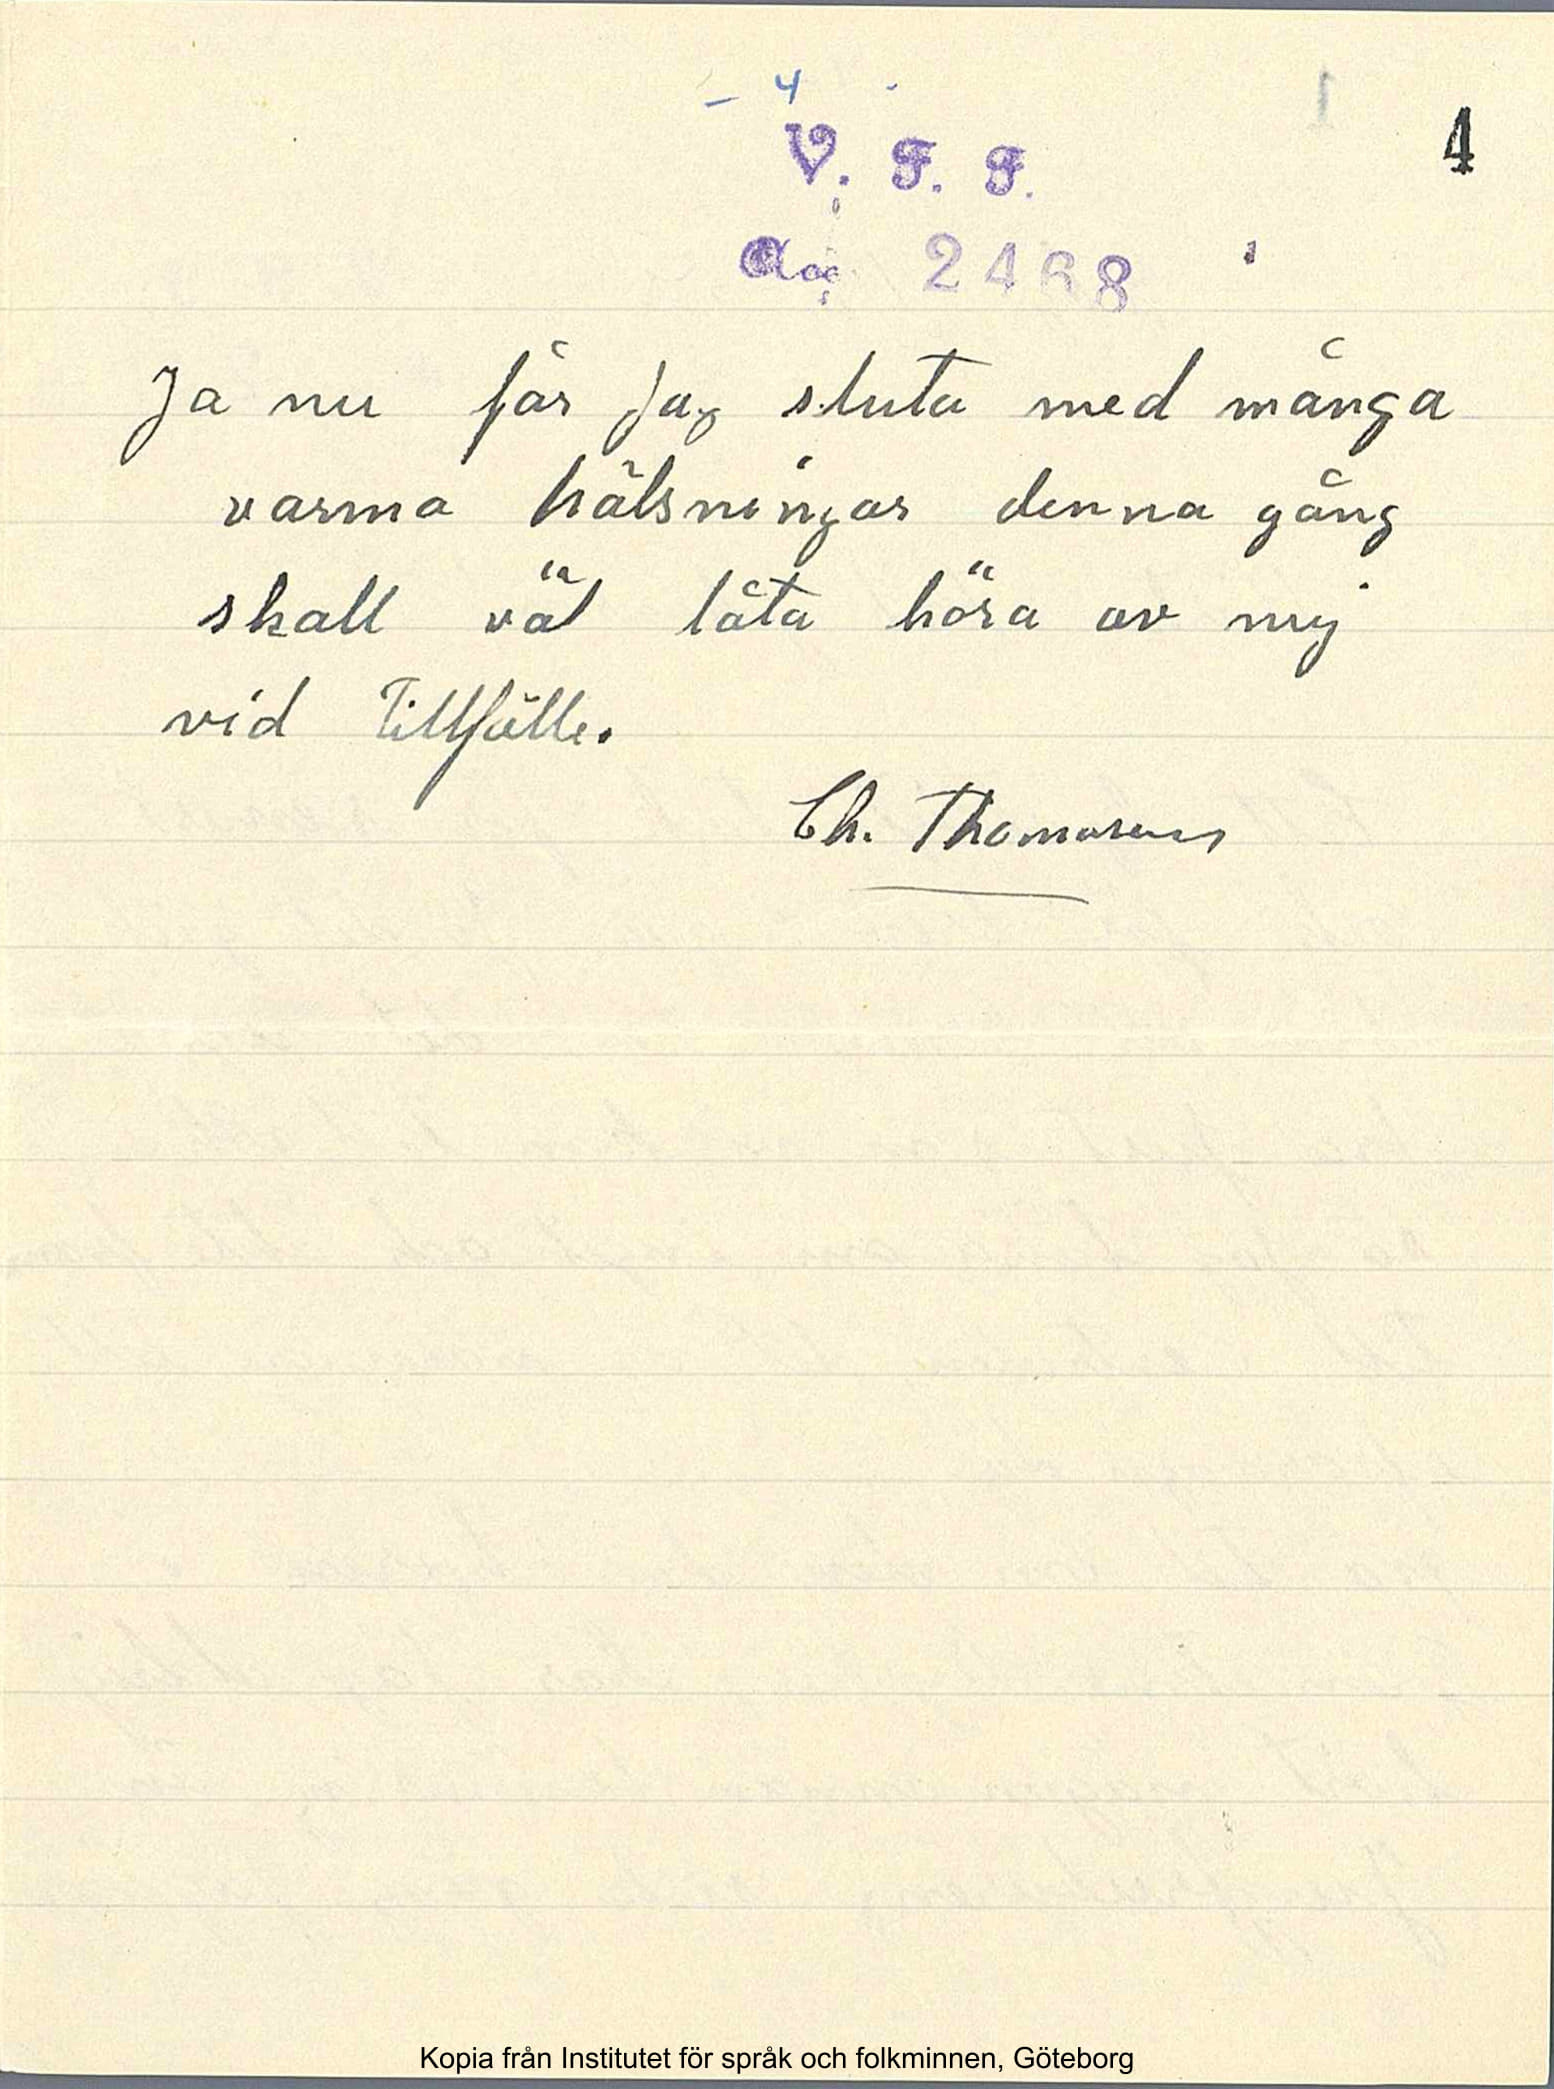 - 4 -
4
V. F. F.
Acc 2468
Ja nu får jag sluta med många
varma hälsningar denna gång
skall väl låta höra av mig
vid Tillfälle.
Ch. Thomasson
Kopia från Institutet för språk och folkminnen, Göteborg